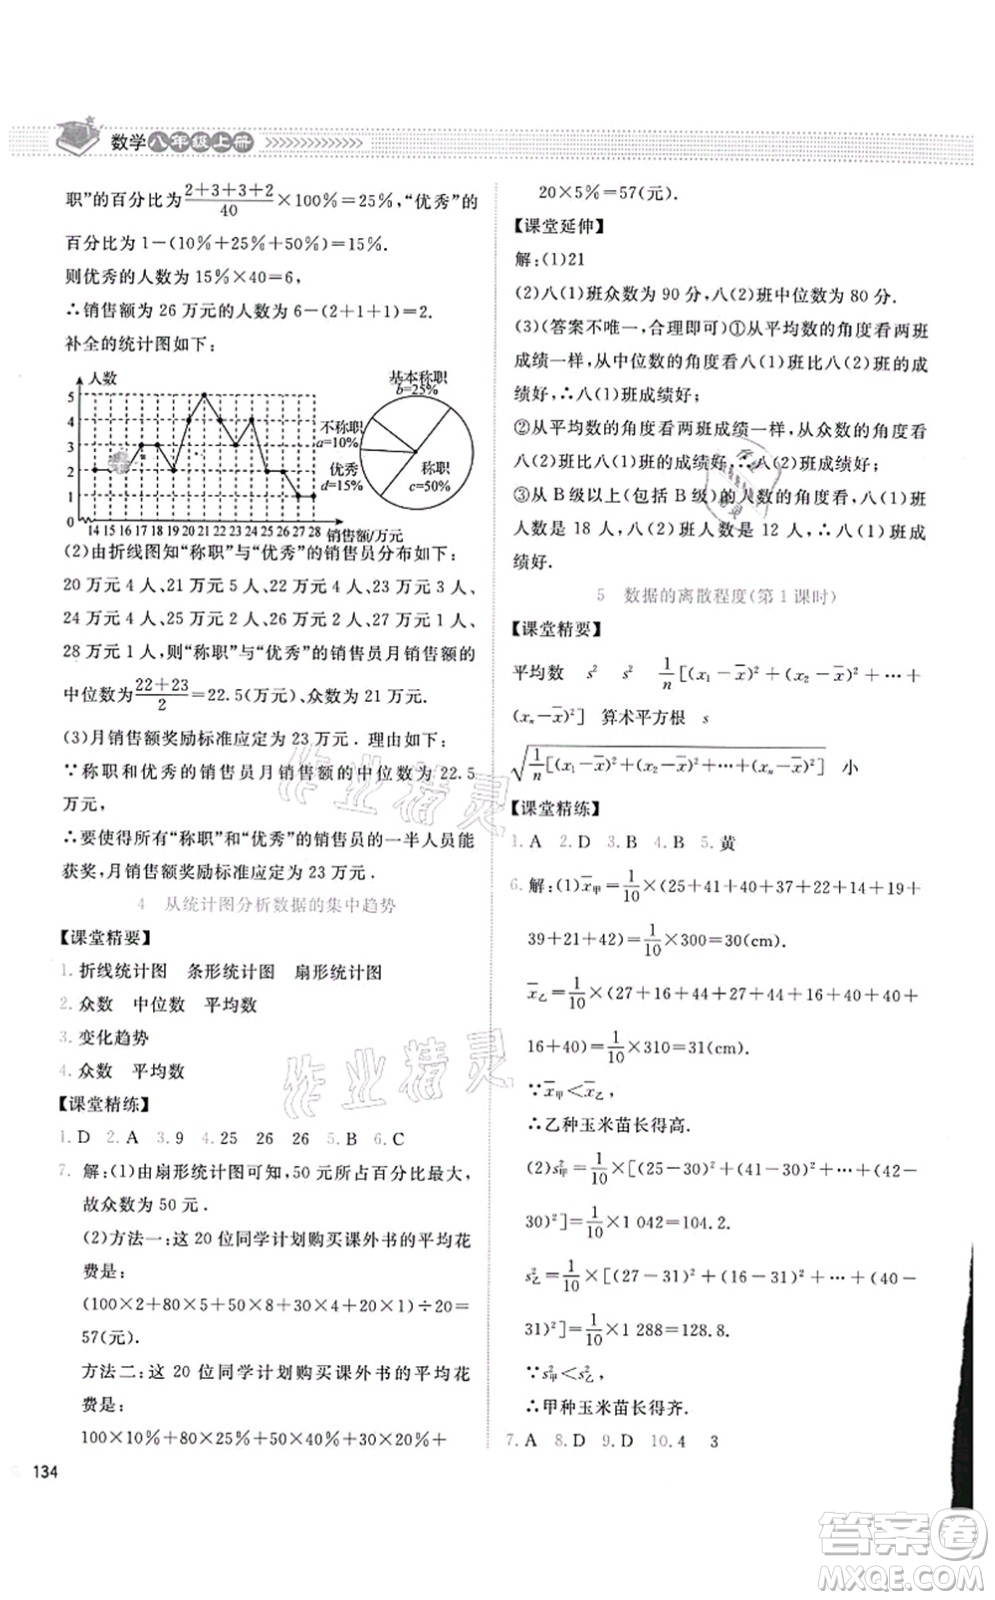 数学八年级上册
职”的百分比为\frac{2+3+3+2}{40}×100%=25%,“优秀”的
百分比为1-(10%+25%+50%)=15%.
则优秀的人数为15%×40=6,
∴销售额为26万元的人数为6-(2+1+1)=2.
补全的统计图如下:
人数
5
4
3
2
1
0
14 15 16 17 18 19 20 21 22 23 24 25 26 27 28 销售额/万元
基本称职
b=25%
不称职
a=10%
优秀
d=15%
称职
c=50%
(2)由折线图知“称职”与“优秀”的销售员分布如下:
20万元4人、21万元5人、22万元4人、23万元3人、
24万元4人、25万元2人、26万元2人、27万元1人、
28万元1人,则“称职”与“优秀”的销售员月销售额的
中位数为\frac{22+23}{2}=22.5(万元)、众数为21万元.
(3)月销售额奖励标准应定为23万元.理由如下:
∵称职和优秀的销售员月销售额的中位数为22.5
万元,
∴要使得所有“称职”和“优秀”的销售员的一半人员能
获奖,月销售额奖励标准应定为23万元.
4 从统计图分析数据的集中趋势
【课堂精要】
1. 折线统计图 条形统计图 扇形统计图
2. 众数 中位数 平均数
3. 变化趋势
4. 众数 平均数
【课堂精练】
1. D 2. A 3. 9 4. 25 26 26 5. B 6. C
7. 解:(1)由扇形统计图可知,50元所占百分比最大,
故众数为50元.
(2)方法一:这20位同学计划购买课外书的平均花
费是:
(100×2+80×5+50×8+30×4+20×1)÷20=
57(元).
方法二:这20位同学计划购买课外书的平均花
费是:
100×10%+80×25%+50×40%+30×20%+
134
20×5%=57(元).
【课堂延伸】
解:(1)21
(2)八(1)班众数为90分,八(2)班中位数为80分.
(3)(答案不唯一,合理即可)①从平均数的角度看两班
成绩一样,从中位数的角度看八(1)班比八(2)班的成
绩好,∴八(1)班成绩好;
②从平均数的角度看两班成绩一样,从众数的角度看
八(2)班比八(1)班的成绩好,∴八(2)班成绩好;
③从B级以上(包括B级)的人数的角度看,八(1)班
人数是18人,八(2)班人数是12人,∴八(1)班
成绩好.
5 数据的离散程度(第1课时)
【课堂精要】
平均数 s² s² \frac{1}{n}[(x₁-x̄)²+(x₂-x̄)²+…+
(xₙ-x̄)²] 算术平方根 s
\sqrt{\frac{1}{n}[(x₁-x̄)²+(x₂-x̄)²+…+(xₙ-x̄)²]} 小
【课堂精练】
1. A 2. D 3. B 4. B 5. 黄
6. 解:(1)x̄甲=\frac{1}{10}×(25+41+40+37+22+14+19+
39+21+42)=\frac{1}{10}×300=30(cm).
x̄乙=\frac{1}{10}×(27+16+44+27+44+16+40+40+
16+40)=\frac{1}{10}×310=31(cm).
∵x̄甲<x̄乙,
∴乙种玉米苗长得高.
(2)s²甲=\frac{1}{10}×[(25-30)²+(41-30)²+…+(42-
30)²]=\frac{1}{10}×1 042=104.2.
s²乙=\frac{1}{10}×[(27-31)²+(16-31)²+…+(40-
31)²]=\frac{1}{10}×1 288=128.8.
∵s²甲<s²乙,
∴甲种玉米苗长得齐.
7. A 8. D 9. D 10. 4 3
作业精灵
作业精灵
答案卷
MXQE.COM